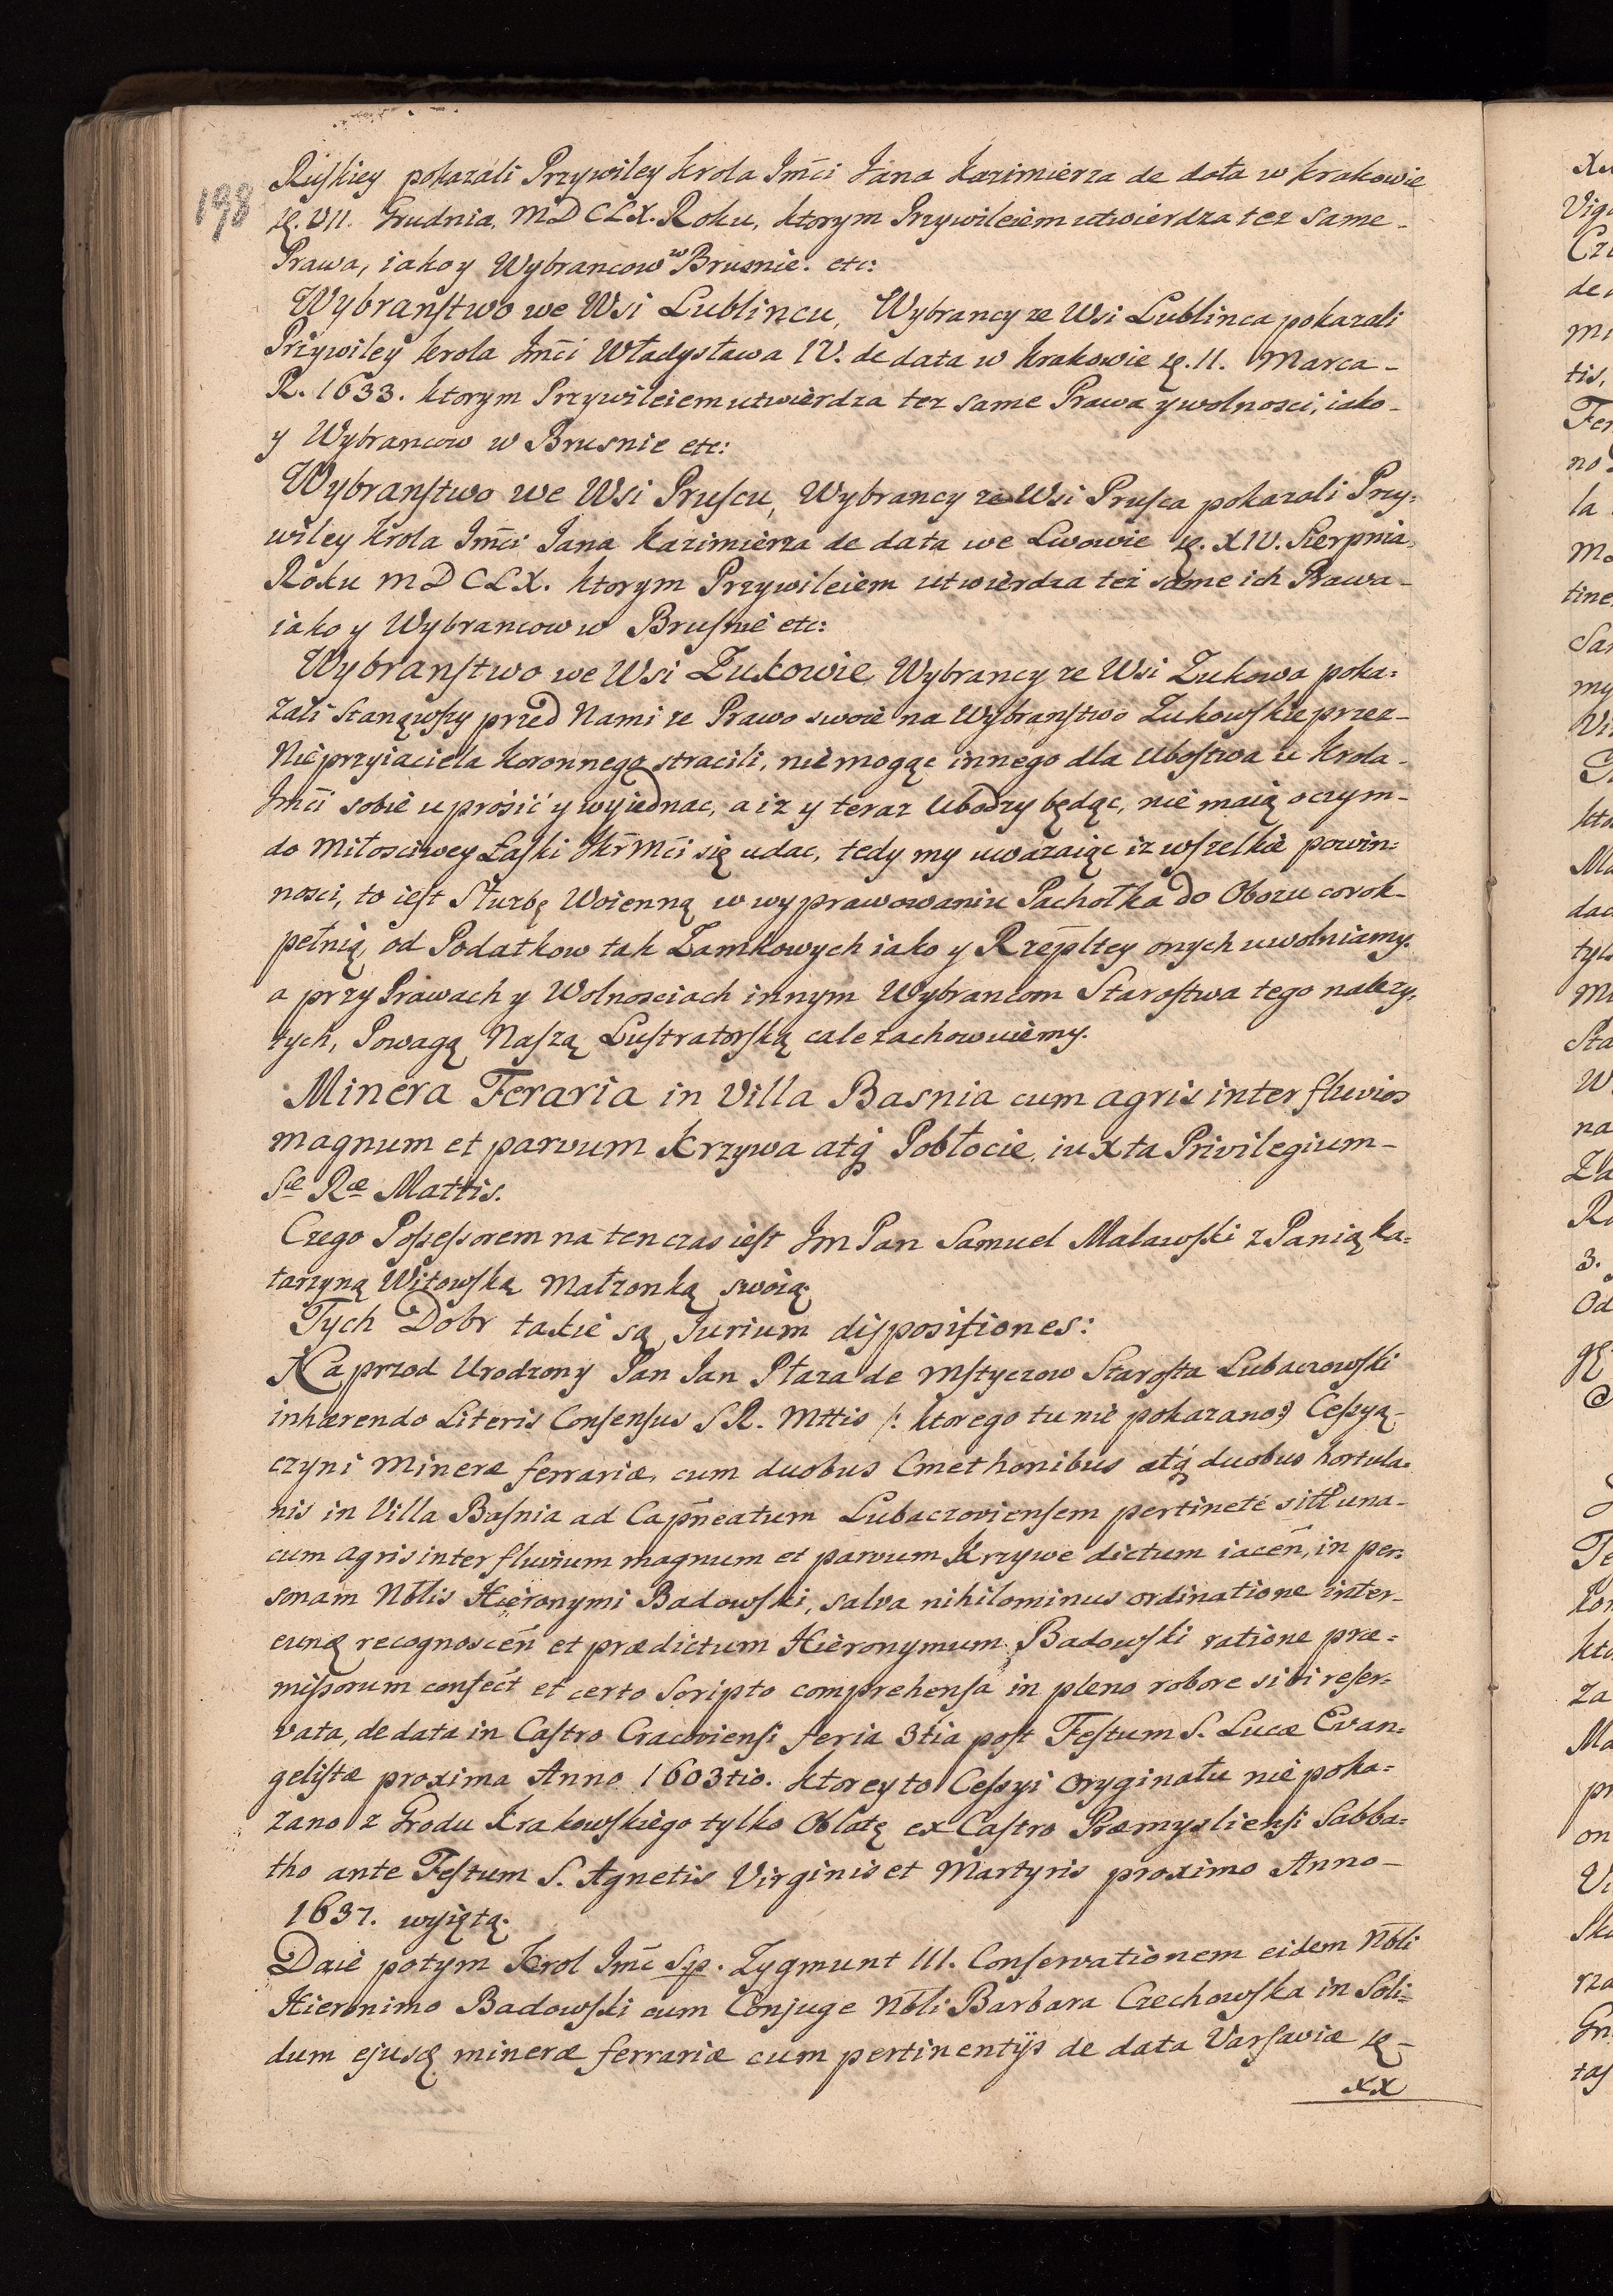 198
Ruskiey pokazali Przywiley Krola Jmci Jana Kazimierza de data w Krakowie
VII. Grudnia, MDCLX. Roku, ktorym Przywileiem utwierdza tez same
Prawa, iako y Wybrancow w Brusnie. etc:
Wybranstwo we Wsi Lublincu, Wybrancy ze Wsi Lublinca pokazali
Przywiley Krola Jmci Władysława IV. de data w Krakowie 11. Marca
R. 1633. ktorym Przywileiem utwierdza tez same Prawa y wolnosci, iako
y Wybrancow w Brusnie etc:
Wybranstwo we Wsi Pruscu, Wybrancy ze Wsi Prusca pokazali Przy=
wiley Krola Jmci Jana Kazimierza de data we Lwowie XIV. Sierpnia
Roku MDCLX. ktorym Przywileiem utwierdza tez same ich Prawa
iako y Wybrancow w Brusnie etc:
Wybranstwo we Wsi Zukowie Wybrancy ze Wsi Zukowa poka=
zali stanąwszy przed Nami ze Prawo swoie na Wybranstwo Zukowskie przez
Nieprzyiaciela Koronnego stracili, nie mogąc innego dla Ubostwa u Krola
Jmci sobie uprosić y wyjednac, a iz y teraz Ubodzy będąc, nie maią oczym
do Miłosciwey Łaski JKrMci się udac, tedy my uwazaiąc iz wszelkie powin=
nosci, to iest Słuzbę Woienną w wyprawowaniu Pachołka do Obozu co rok
pełnią, od Podatkow tak Zamkowych iako y Rzepltey onych uwolniamy.
a przy Prawach y Wolnosciach innym Wybrancom Starostwa tego nalezy=
tych, Powagą Naszą Lustratorską cale zachowuiemy.
Minera Feraria in Villa Basnia cum agris inter fluvios
magnum et parvum Krzywa atq Pobłocie, iuxta Privilegium
Sæ Ræ Mattis.
Czego Possessorem na ten czas iest Jm Pan Samuel Malawski z Panią Ka=
tarzyną Witowską Małzonką swoią.
Tych Dobr takie są Jurium dispositiones:
Naprzod Urodzony Pan Jan Płaza de Mstyczow Starosta Lubaczowski
inhærendo Literis Consensus S.R. Mttis /: ktorego tu nie pokazano:/ Cessyą
czyni Mineræ ferrariæ, cum duobus Cmethonibus atq duobus hortula=
nis in Villa Basnia ad Capneatum Lubaczoviensem pertinete sitt una
cum agris inter fluvium magnum et parvum Krzywe dictum iacen, in per=
sonam Nblis Hieronymi Badowski, salva nihilominus ordinatione inter
eunq recognoscen et prædictum Hieronymum Badowski ratione præ=
missorum confect et certo Scripto comprehensa in pleno robore sibi reser=
vata, de data in Castro Cracoviensi feria 3tia post Festum S. Lucæ Evan=
gelistæ proxima Anno 1603tio. ktorey to Cessyi Oryginału nie poka=
zano z Grodu Krakowskiego tylko Oblatę ex Castro Præmysliensi Sabba=
tho ante Festum S. Agnetis Virginis et Martyris proximo Anno
1637. wyiętą.
Daie potym Krol Jmc Sp. Zygmunt III. Conservationem eidem Nbli
Hieronimo Badowski cum Conjuge Nbli Barbara Czechowska in Soli=
dum ejusq mineræ ferrariæ cum pertinentijs de data Varsaviæ
XX